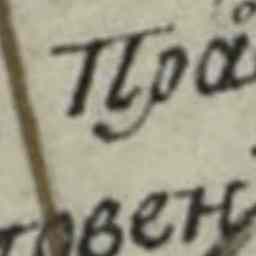 Пра
овен